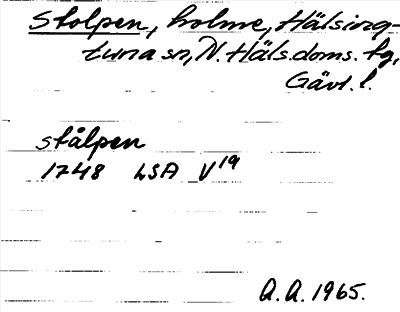 Stolpen, holme, Hälsing-
tuna sn, N. Häls. doms. tg,
Gävl. l.
stålpen
1748 LSA V19
A.A. 1965.